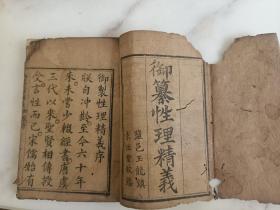 御纂性理精義
御製性理精義序
朕自冲齡至今六十年
來未嘗少輟經書唐虞
三代以來聖賢相傳授
受言性而已宋儒始有